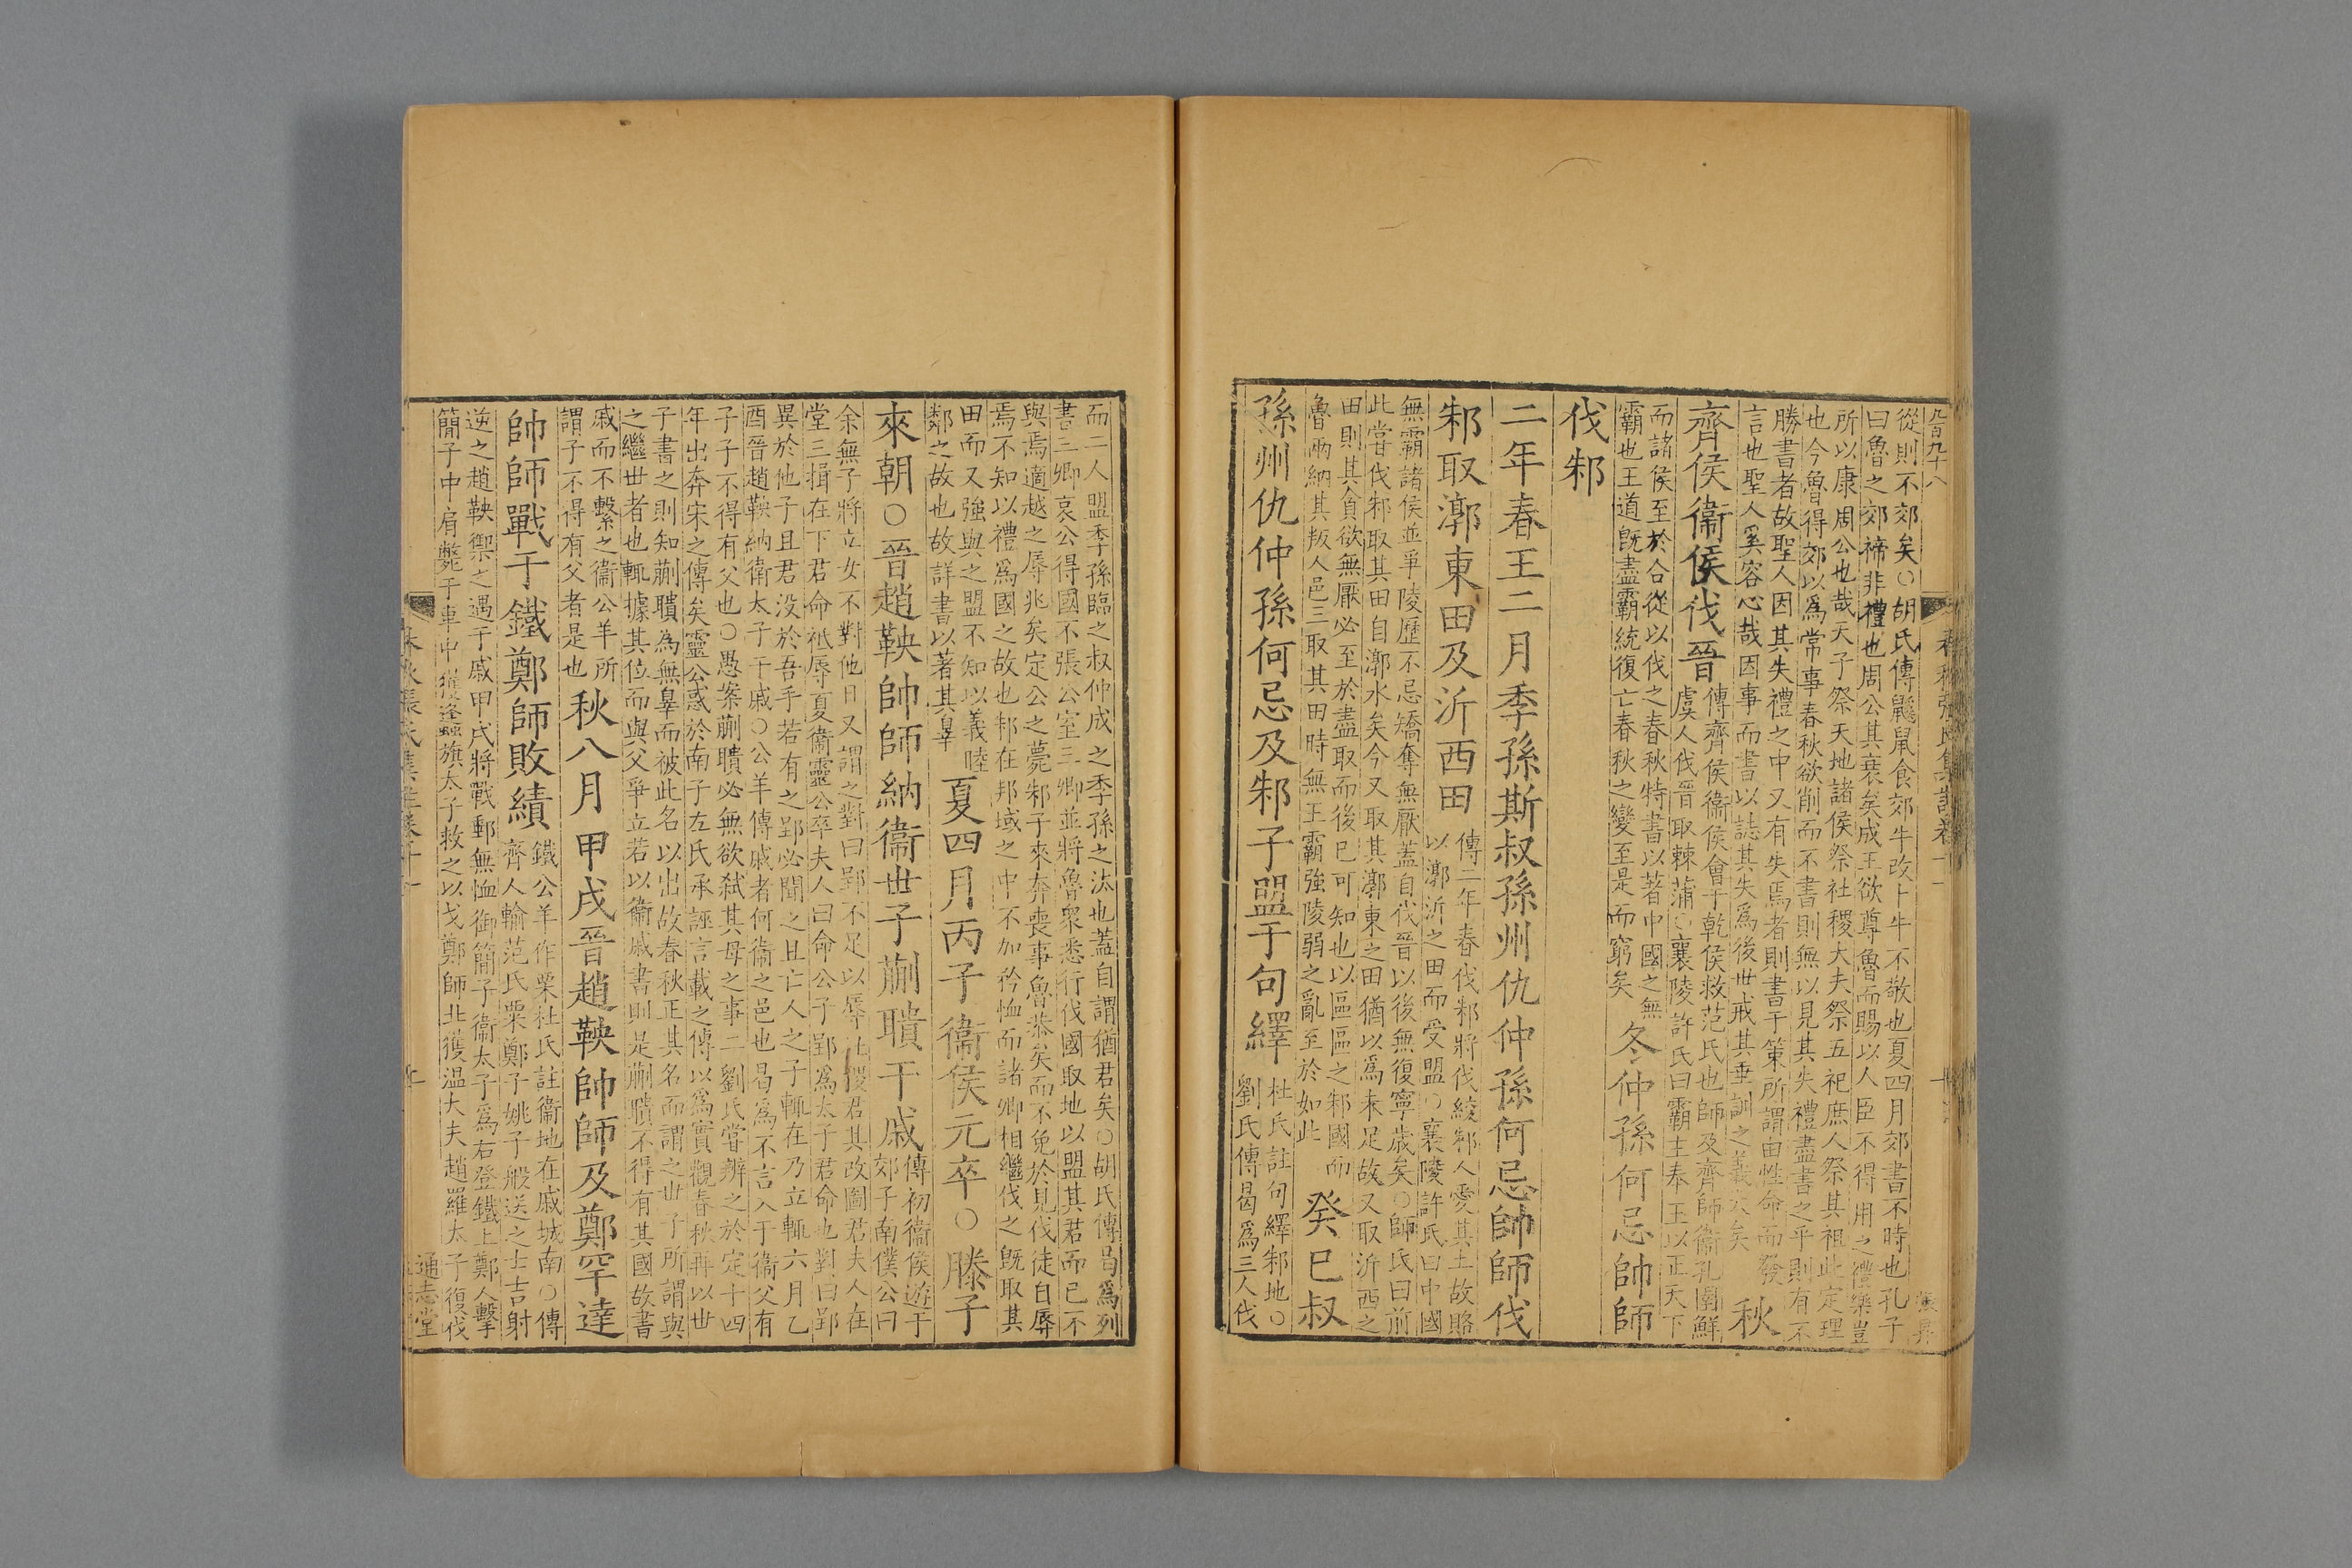 九百九十八
從則不郊矣○胡氏傳鼷鼠食郊牛改卜牛不敬也夏四月郊書不時也孔子
曰魯之郊禘非禮也周公其衰矣成王欲尊魯而賜以人臣不得用之禮樂豈
所以康周公也哉天子祭天地諸侯祭社稷大夫祭五祀庶人祭其祖此定理
也今魯得郊以爲常事春秋欲削而不書則無以見其失禮盡書之乎則有不
勝書者故聖人因其失禮之中又有失焉者則書于策所謂由性命而發
言也聖人奚容心哉因事而書以誌其失爲後世戒其垂訓之義大矣
秋
齊侯衞侯伐晉
傳齊侯衞侯會于乾侯救范氏也師及齊師衞孔圉鮮
虞人伐晉取棘蒲○襄陵許氏曰霸主奉王以正天下
而諸侯至於合從以伐之春秋特書以著中國之無
霸也王道旣盡霸統復亡春秋之變至是而窮矣
冬仲孫何忌帥師
伐邾
二年春王二月季孫斯叔孫州仇仲孫何忌帥師伐
邾取漷東田及沂西田
傳二年春伐邾將伐絞邾人愛其土故賂
以漷沂之田而受盟○襄陵許氏曰中國
無霸諸侯並爭陵歷不忌矯奪無厭蓋自伐晉以後無復寧歲矣○師氏曰前
此嘗伐邾取其田自漷水矣今又取其漷東之田猶以爲未足故又取沂西之
田則其貪欲無厭必至於盡取而後已可知也以區區之邾國而
魯兩納其叛人邑三取其田時無王霸強陵弱之亂至於如此
癸巳叔
孫州仇仲孫何忌及邾子盟于句繹
杜氏註句繹邾地○
劉氏傳曷爲三人伐
而二人盟季孫臨之叔仲成之季孫之汰也蓋自謂猶君矣○胡氏傳曷爲列
書三卿哀公得國不張公室三卿並將魯衆悉行伐國取地以盟其君而已不
與焉適越之辱兆矣定公之薨邾子來奔喪事魯恭矣而不免於見伐徒自辱
焉不知以禮爲國之故也邾在邦域之中不加矜恤而諸卿相繼伐之旣取其
田而又強與之盟不知以義睦
鄰之故也故詳書以著其辠
夏四月丙子衞侯元卒○滕子
來朝○晉趙鞅帥師納衞世子蒯聵于戚
傳初衞侯遊于
郊子南僕公曰
余無子將立女不對他日又謂之對曰郢不足以辱社稷君其改圖君夫人在
堂三揖在下君命祗辱夏衞靈公卒夫人曰命公子郢爲太子君命也對曰郢
異於他子且君没於吾手若有之郢必聞之且亡人之子輒在乃立輒六月乙
酉晉趙鞅納衞太子于戚○公羊傳戚者何衞之邑也曷爲不言入于衞父有
子子不得有父也○愚案蒯聵必無欲弑其母之事二劉氏嘗辨之於定十四
年出奔宋之傳矣靈公惑於南子左氏承誣言載之傳以爲實觀春秋再以世
子書之則知蒯聵為無辠而被此名以出故春秋正其名而謂之世子所謂與
之繼世者也輒據其位而與父爭立若以衞戚書則是蒯聵不得有其國故書
戚而不繫之衞公羊所
謂子不得有父者是也
秋八月甲戌晉趙鞅帥師及鄭罕達
帥師戰于鐵鄭師敗績
鐵公羊作栗杜氏註衞地在戚城南○傳
齊人輸范氏粟鄭子姚子般送之士吉射
逆之趙鞅禦之遇于戚甲戌將戰郵無恤御簡子衞太子爲右登鐵上鄭人擊
簡子中肩斃于車中獲逢蠭旗太子救之以戈鄭師北獲溫大夫趙羅太子復伐
通志堂